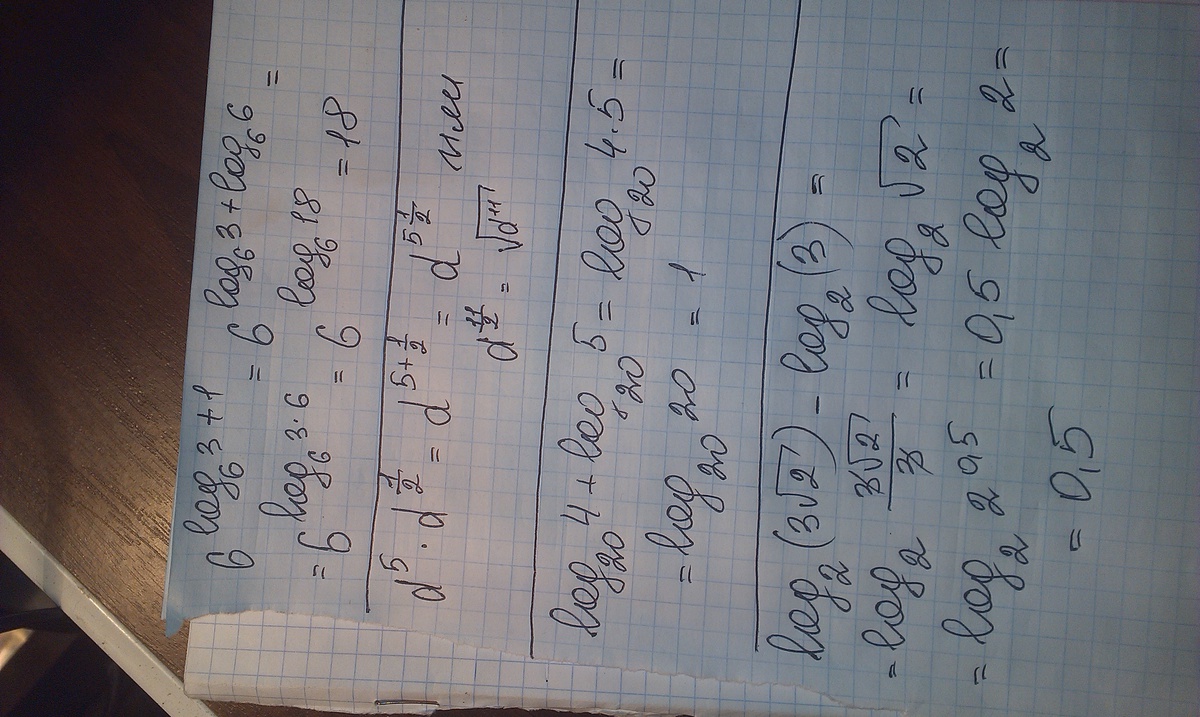 6^(log₆3+1) = 6^(log₆3+log₆6) =
= 6^(log₆3·6) = 6^(log₆18) = 18
d⁵·d^(1/2) = d^(5+1/2) = d^(5 1/2) или
d^(11/2) = √(d¹¹)
log₂₀4+log₂₀5 = log₂₀4·5 =
= log₂₀20 = 1
log₂(3√2) - log₂(3) =
= log₂ (3√2)/3 = log₂√2 =
= log₂2^(0,5) = 0,5 log₂2 =
= 0,5